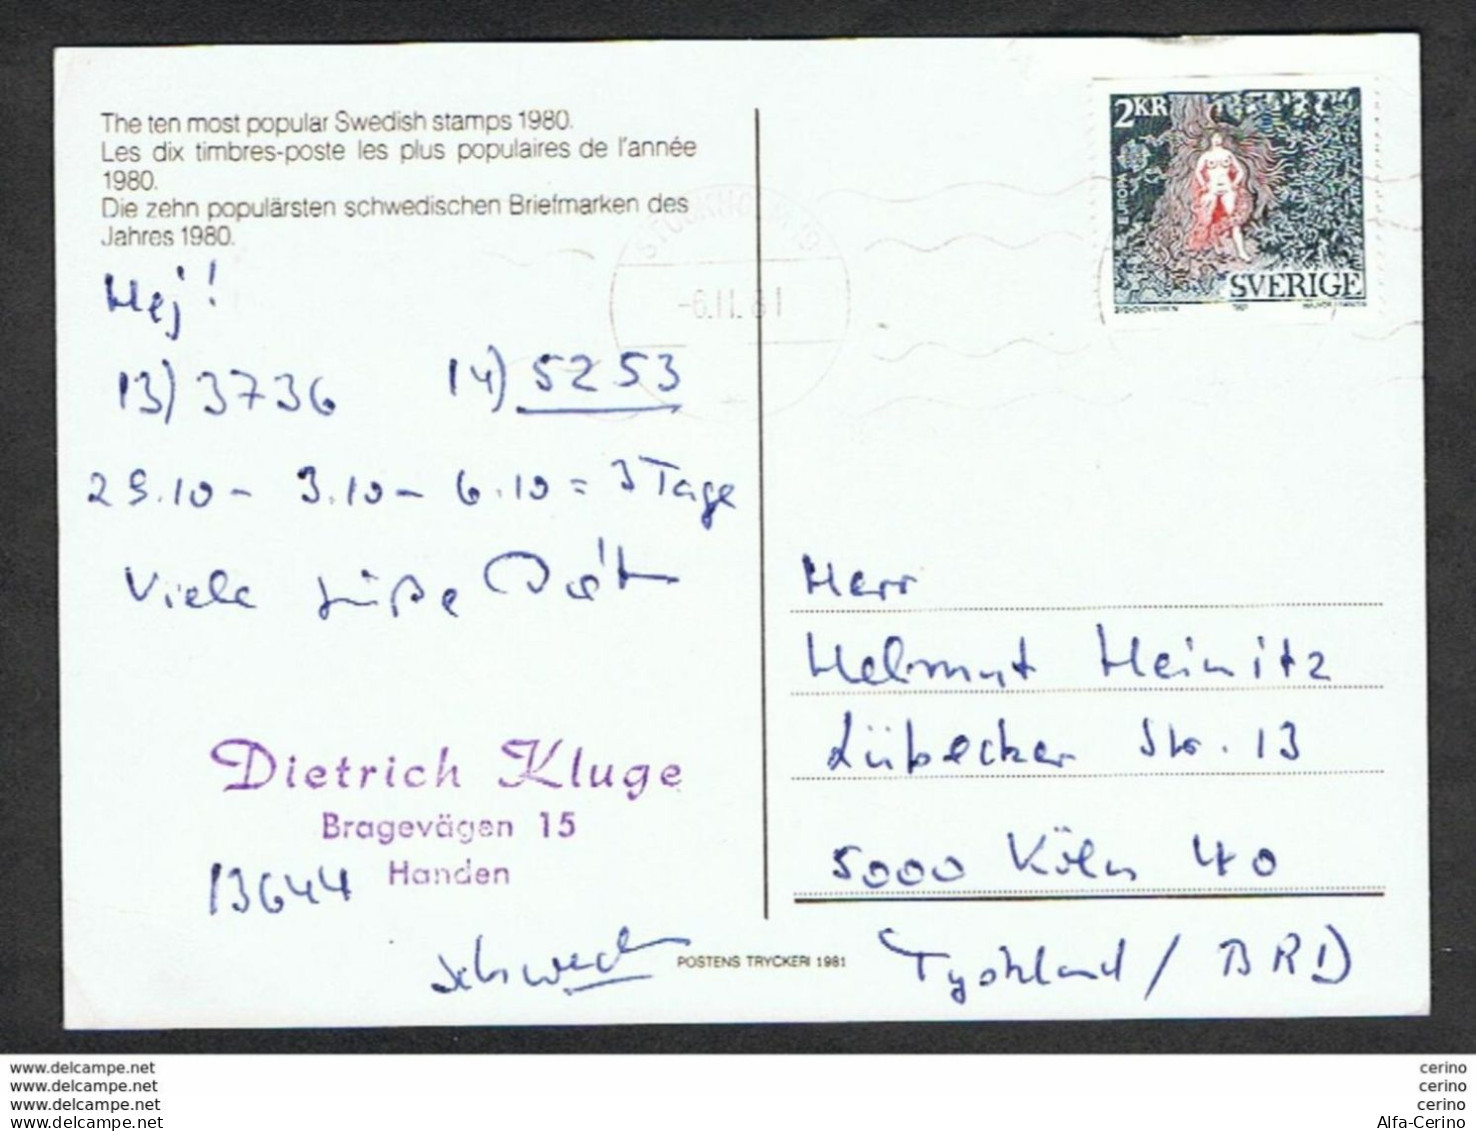 The ten most popular Swedish stamps 1980.
Les dix timbres-poste les plus populaires de l'année
1980.
Die zehn populärsten schwedischen Briefmarken des
Jahres 1980.
Hej!
13) 3736 14) 5253
29.10 - 3.10 - 6.10 = 3 Tage
Viele Grüße
Dietrich Kluge
Bragevägen 15
13644 Handen
Schweden
POSTENS TRYCKERI 1981
STOCKHOLM
-6.11.81
2KR
EUROPA
SVERIGE
Herr
Helmut Heinitz
Lübecker Str. 13
5000 Köln 40
Tyskland / BRD
www.delcampe.net
www.delcampe.net
www.delcampe.net
www.delcampe.net
cerino
cerino
cerino
Alfa-Cerino